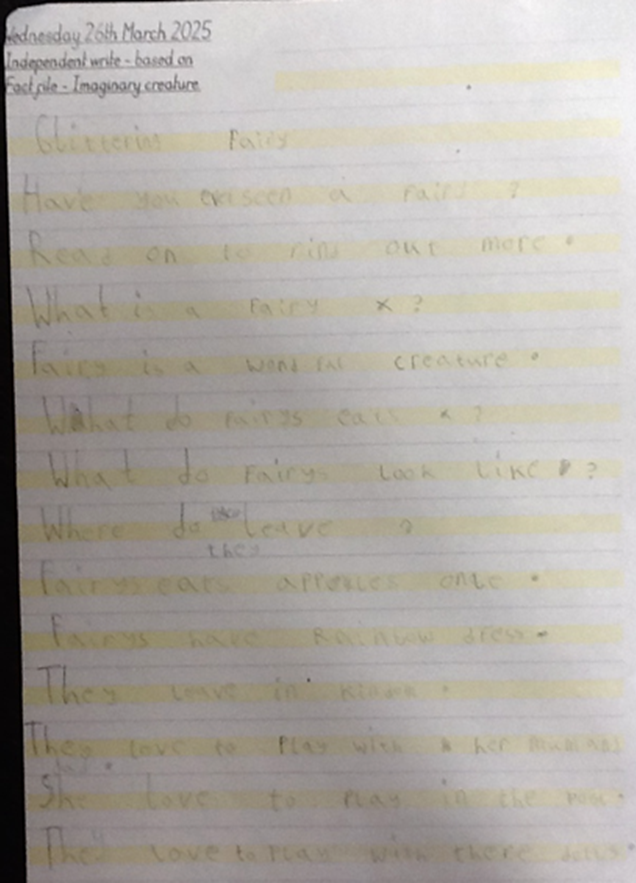 Wednesday 26th March 2025
Independent write - based on
Fact file - Imaginary creature
Glittering Fairy
Have you seen a fairy ?
Read on to find out more .
What is a Fairy x ?
Fairy is a creature .
What do fairys eat x ?
What do Fairys Look Like ?
Where do leave ?
they
Fairys eats onle .
Fairys have Rainbow dress .
They leave in .
They love to Play with her
dad .
She love to Play in the .
They love to Play with there dolls .